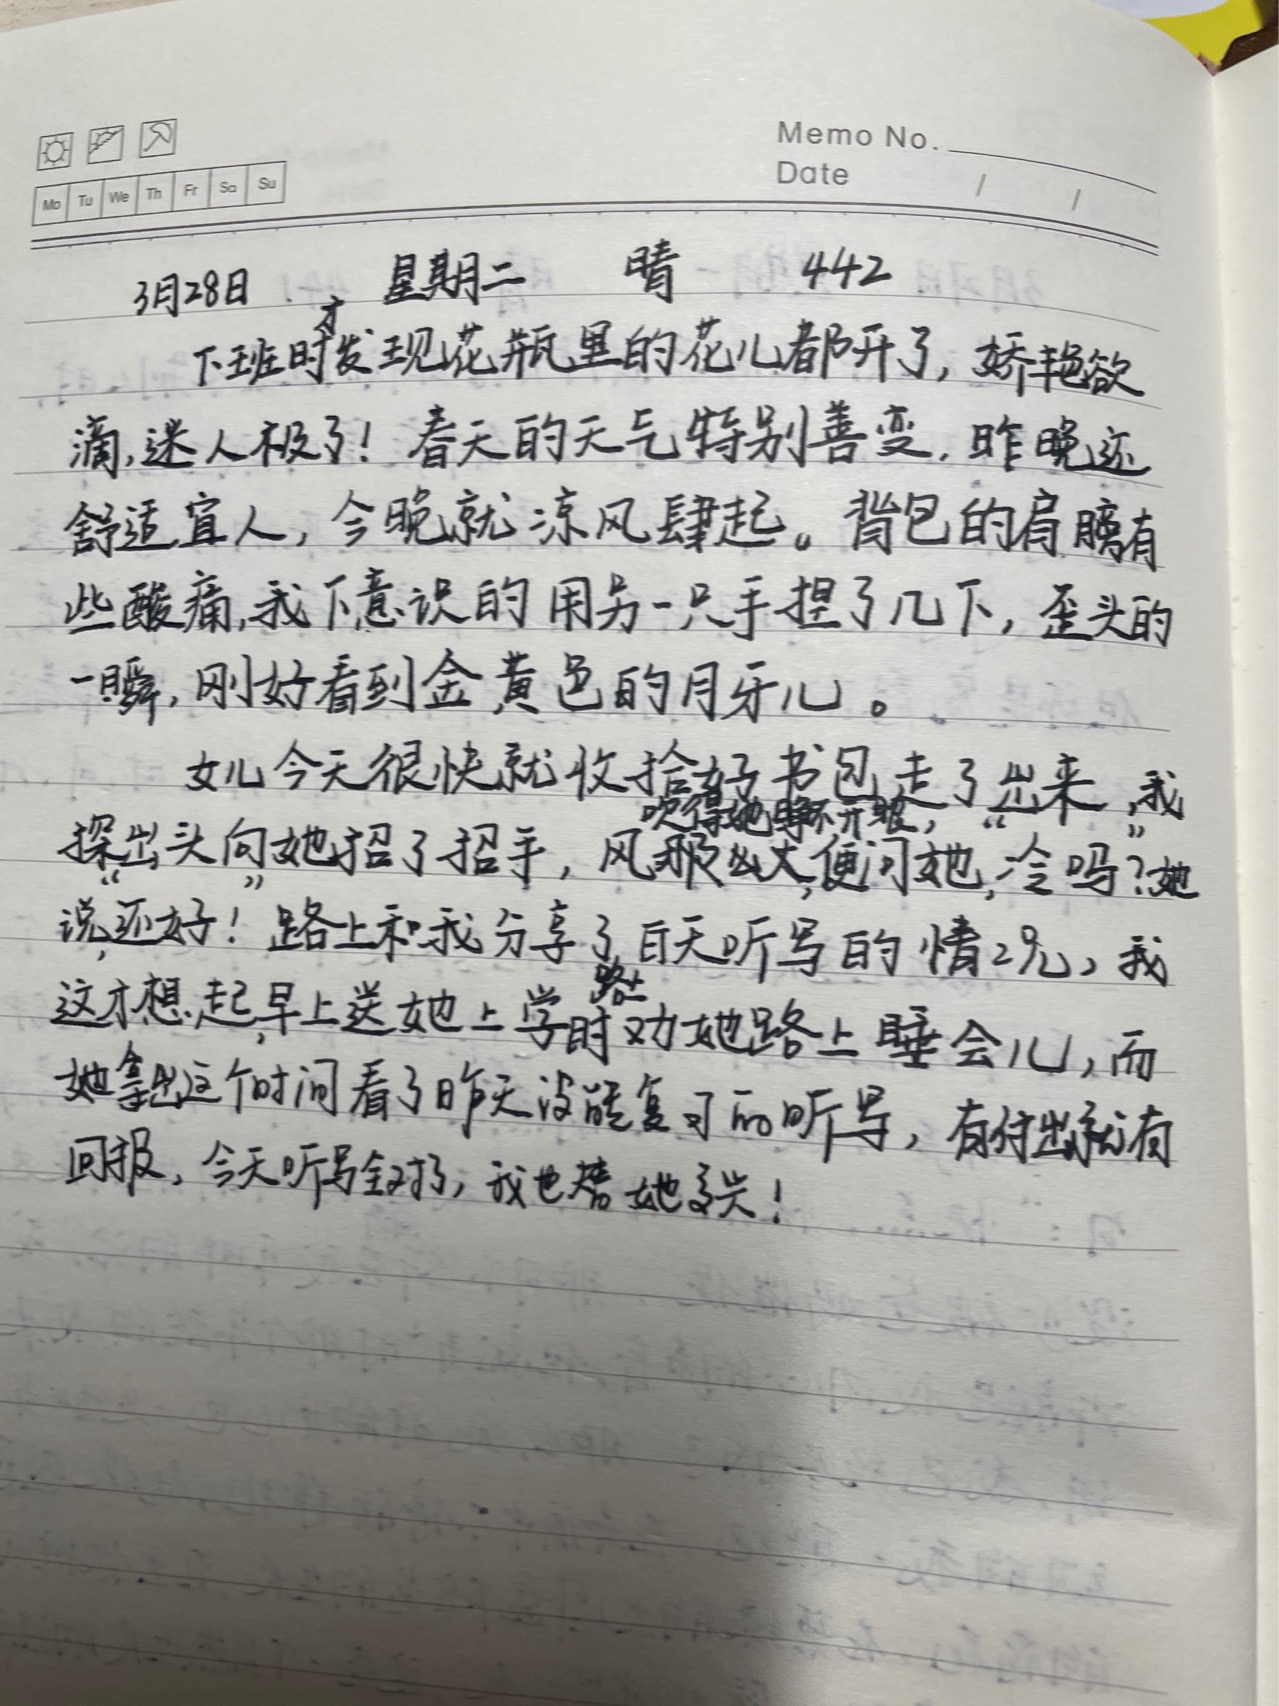 Memo No.
Date / /
Mo Tu We Th Fr Sa Su
3月28日 星期二 晴 442
下班时才发现花瓶里的花儿都开了，娇艳欲
滴，迷人极了！春天的天气特别善变，昨晚还
舒适宜人，今晚就凉风肆起。背包的肩膀有
些酸痛，我下意识的用另一只手捏了几下，歪头的
一瞬，刚好看到金黄色的月牙儿。
女儿今天很快就收拾好书包走了出来，我
探出头向她招了招手，风很大，吹得她睁不开眼，便问她，“冷吗？”她
说，“还好！”路上和我分享了白天听写的情况，我
这才想起，早上送她上学时路上劝她路上睡会儿，而
她拿出这个时间看了昨天没能复习的听写，有付出就有
回报，今天听写全对了，我也替她高兴！